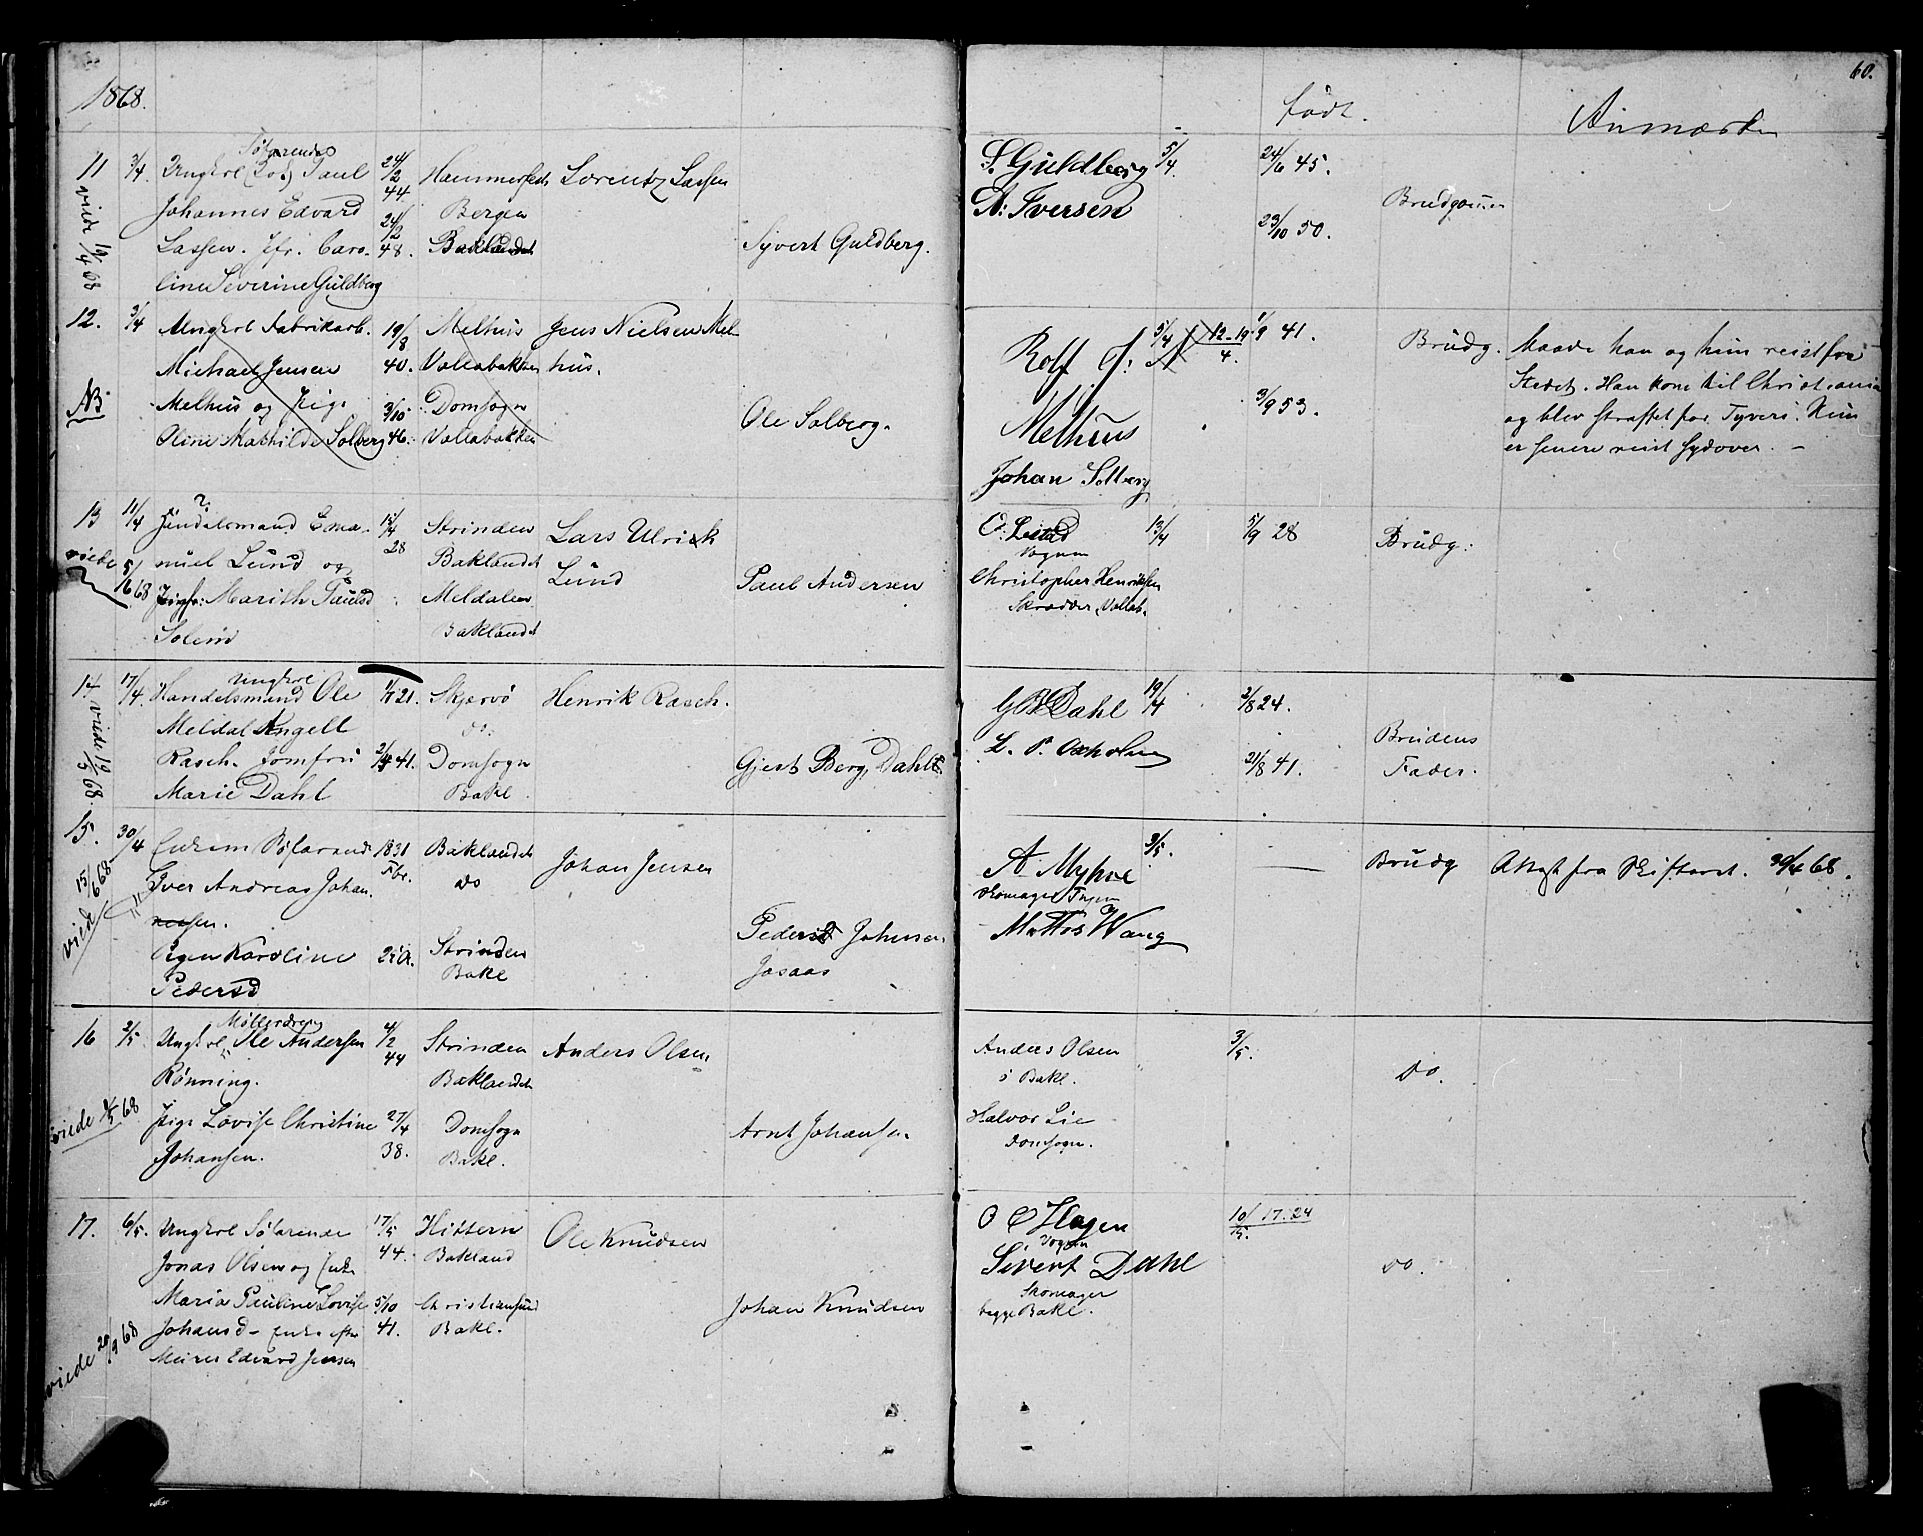 60.
1868.
født.
Anmærkn
11 3/4 Ungkrl Søfarende Paul 24/2 44 Hammerfest Lorentz Lassen
Johannes Edvard Bergen
Lassen. Jfr. Caro- 24/2 48. Baklandet Syvert Guldberg.
line Severine Guldberg
viede 19/4 68
S. Guldberg 5/4. 24/6 45.
A: Iversen 23/10 50. Brudgommen
12. 3/4 Ungkrl Fabrikarb. 19/8 40. Melhus Jens Nielsen Mel-
Michael Jensen Vollabakken hus.
NB
Melhus og Pige 3/10 46. Domsogn Ole Solberg.
Oline Mathilde Solberg Vollabakken
Rolf J: 5/4 12-19/4. 1/9 41. Brudg. Baade han og hun reist fra
Stedet. Han kom til Christiania
Melhuus 3/9 53. og blev straffet for Tyveri. Hun
er senere reist sydover. –
Johan Solberg
13 11/4 Handelsmand Ema- 15/4 28 Strinden Lars Ulrick
nuel Lund og Baklandet Lund
viede 5/6 68 Marith Paulsd Meldalen Paul Andersen
Solem Baklandet
O: Listad 13/4 5/9 28 Brudg:
Vognm
Christopher Henriksen
Skrædder, Vollab.
14. 17/4. Ungkrl
Handelsmand Ole 1/7 21. Skjervø Henrik Rasch.
Meldal Angell do.
Rasch. Jomfru 2/4 41. Domsogn Gjert Berg Dahl
Marie Dahl Bakl.
viede 19/5 68.
G B Dahl 19/4 2/8 24. Brudens
L. P. Oxholm 21/8 41. Fader.
15. 30/4 Enkem Søfarende 1831 Fbr. Baklandet Johan Jensen
Iver Andreas Johan- do
nessen.
Pigen Karoline 25 A. Strinden Peder Johnsen
Pedersd Bakl Jøsaas
viede 15/6 68
A. Myhre 3/5. — Brudg Attest fra Skifteret. 30/4 68.
Skomager
Mattis Wang
16 2/5. Møllersvend
Ungkrl Ole Andersen 4/2 44 Strinden Anders Olsen
Rønning. Baklandet
Pige Lovise Christine 27/4 38. Domsogn Arnt Johansen
Johansen. Bakl.
viede 68
Anders Olsen 3/5. do.
Bakl.
Halvor Lie
Domsogn.
17. 6/5. Ungkrl Søfarende 17/5 44. Hittern Ole Knudsen
Jonas Olsen og Enke Bakland
Maria Pauline Lovise 5/10 41. Christiansund Johan Knudsen
Johansd – Enke efter Bakl.
Meier Edvard Jensen
viede 20/9 68
O C Hagen 10/5. 17. 24
Vognm
Sivert Dahl do.
Skomager
begge Bakl.